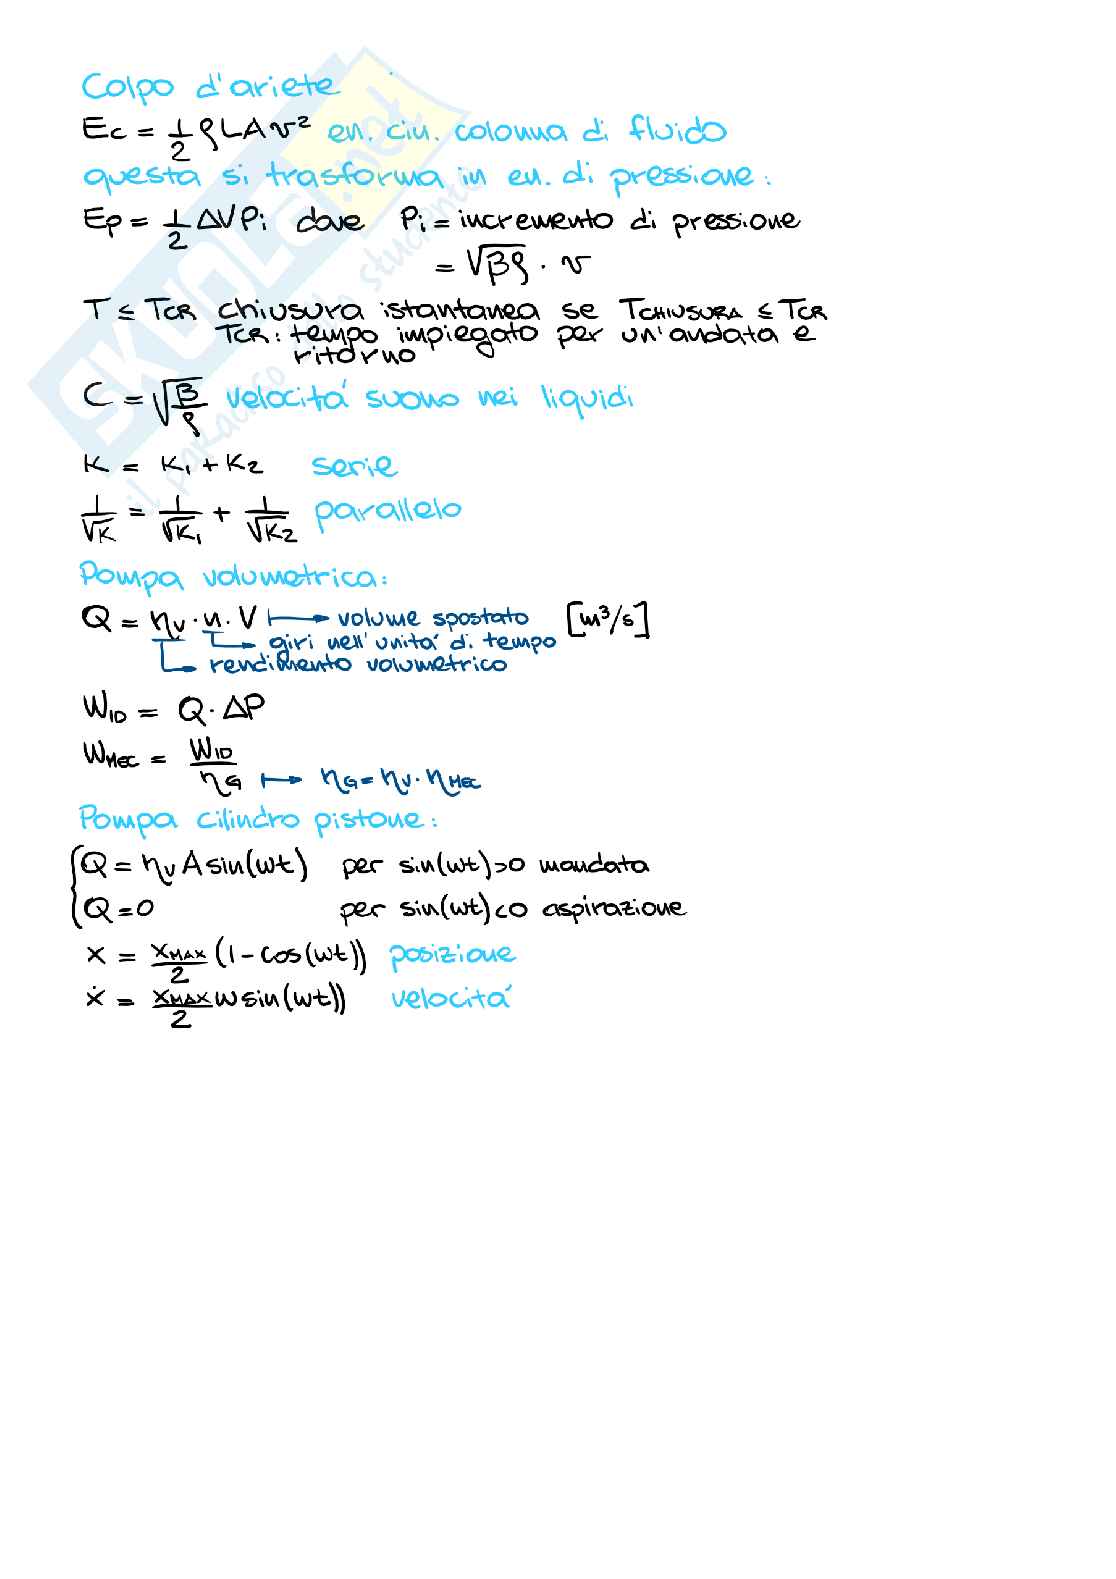 Colpo d'ariete
Ec = 1/2 ρLAv² en. cin. colonna di fluido
questa si trasforma in en. di pressione:
Ep = 1/2 ΔVPi dove Pi = incremento di pressione
= √βρ · v
T ≤ TCR chiusura istantanea se TCHIUSURA ≤ TCR
TCR: tempo impiegato per un'andata e
ritorno
C = √β/ρ velocitá suono nei liquidi
K = K1 + K2 serie
1/√K = 1/√K1 + 1/√K2 parallelo
Pompa volumetrica:
Q = ηv · n · V ↦ volume spostato [m³/s]
→ giri nell'unitá di tempo
→ rendimento volumetrico
WID = Q · ΔP
WMEC = WID/ηG ↦ ηG = ηv · ηMEC
Pompa cilindro pistone:
Q = ηv A sin(wt) per sin(wt)>0 mandata
Q = 0 per sin(wt)<0 aspirazione
x = xMAX/2 (1 - cos(wt)) posizione
ẋ = xMAX/2 w sin(wt)) velocitá
SKUOLA.net
il paradiso dello studente